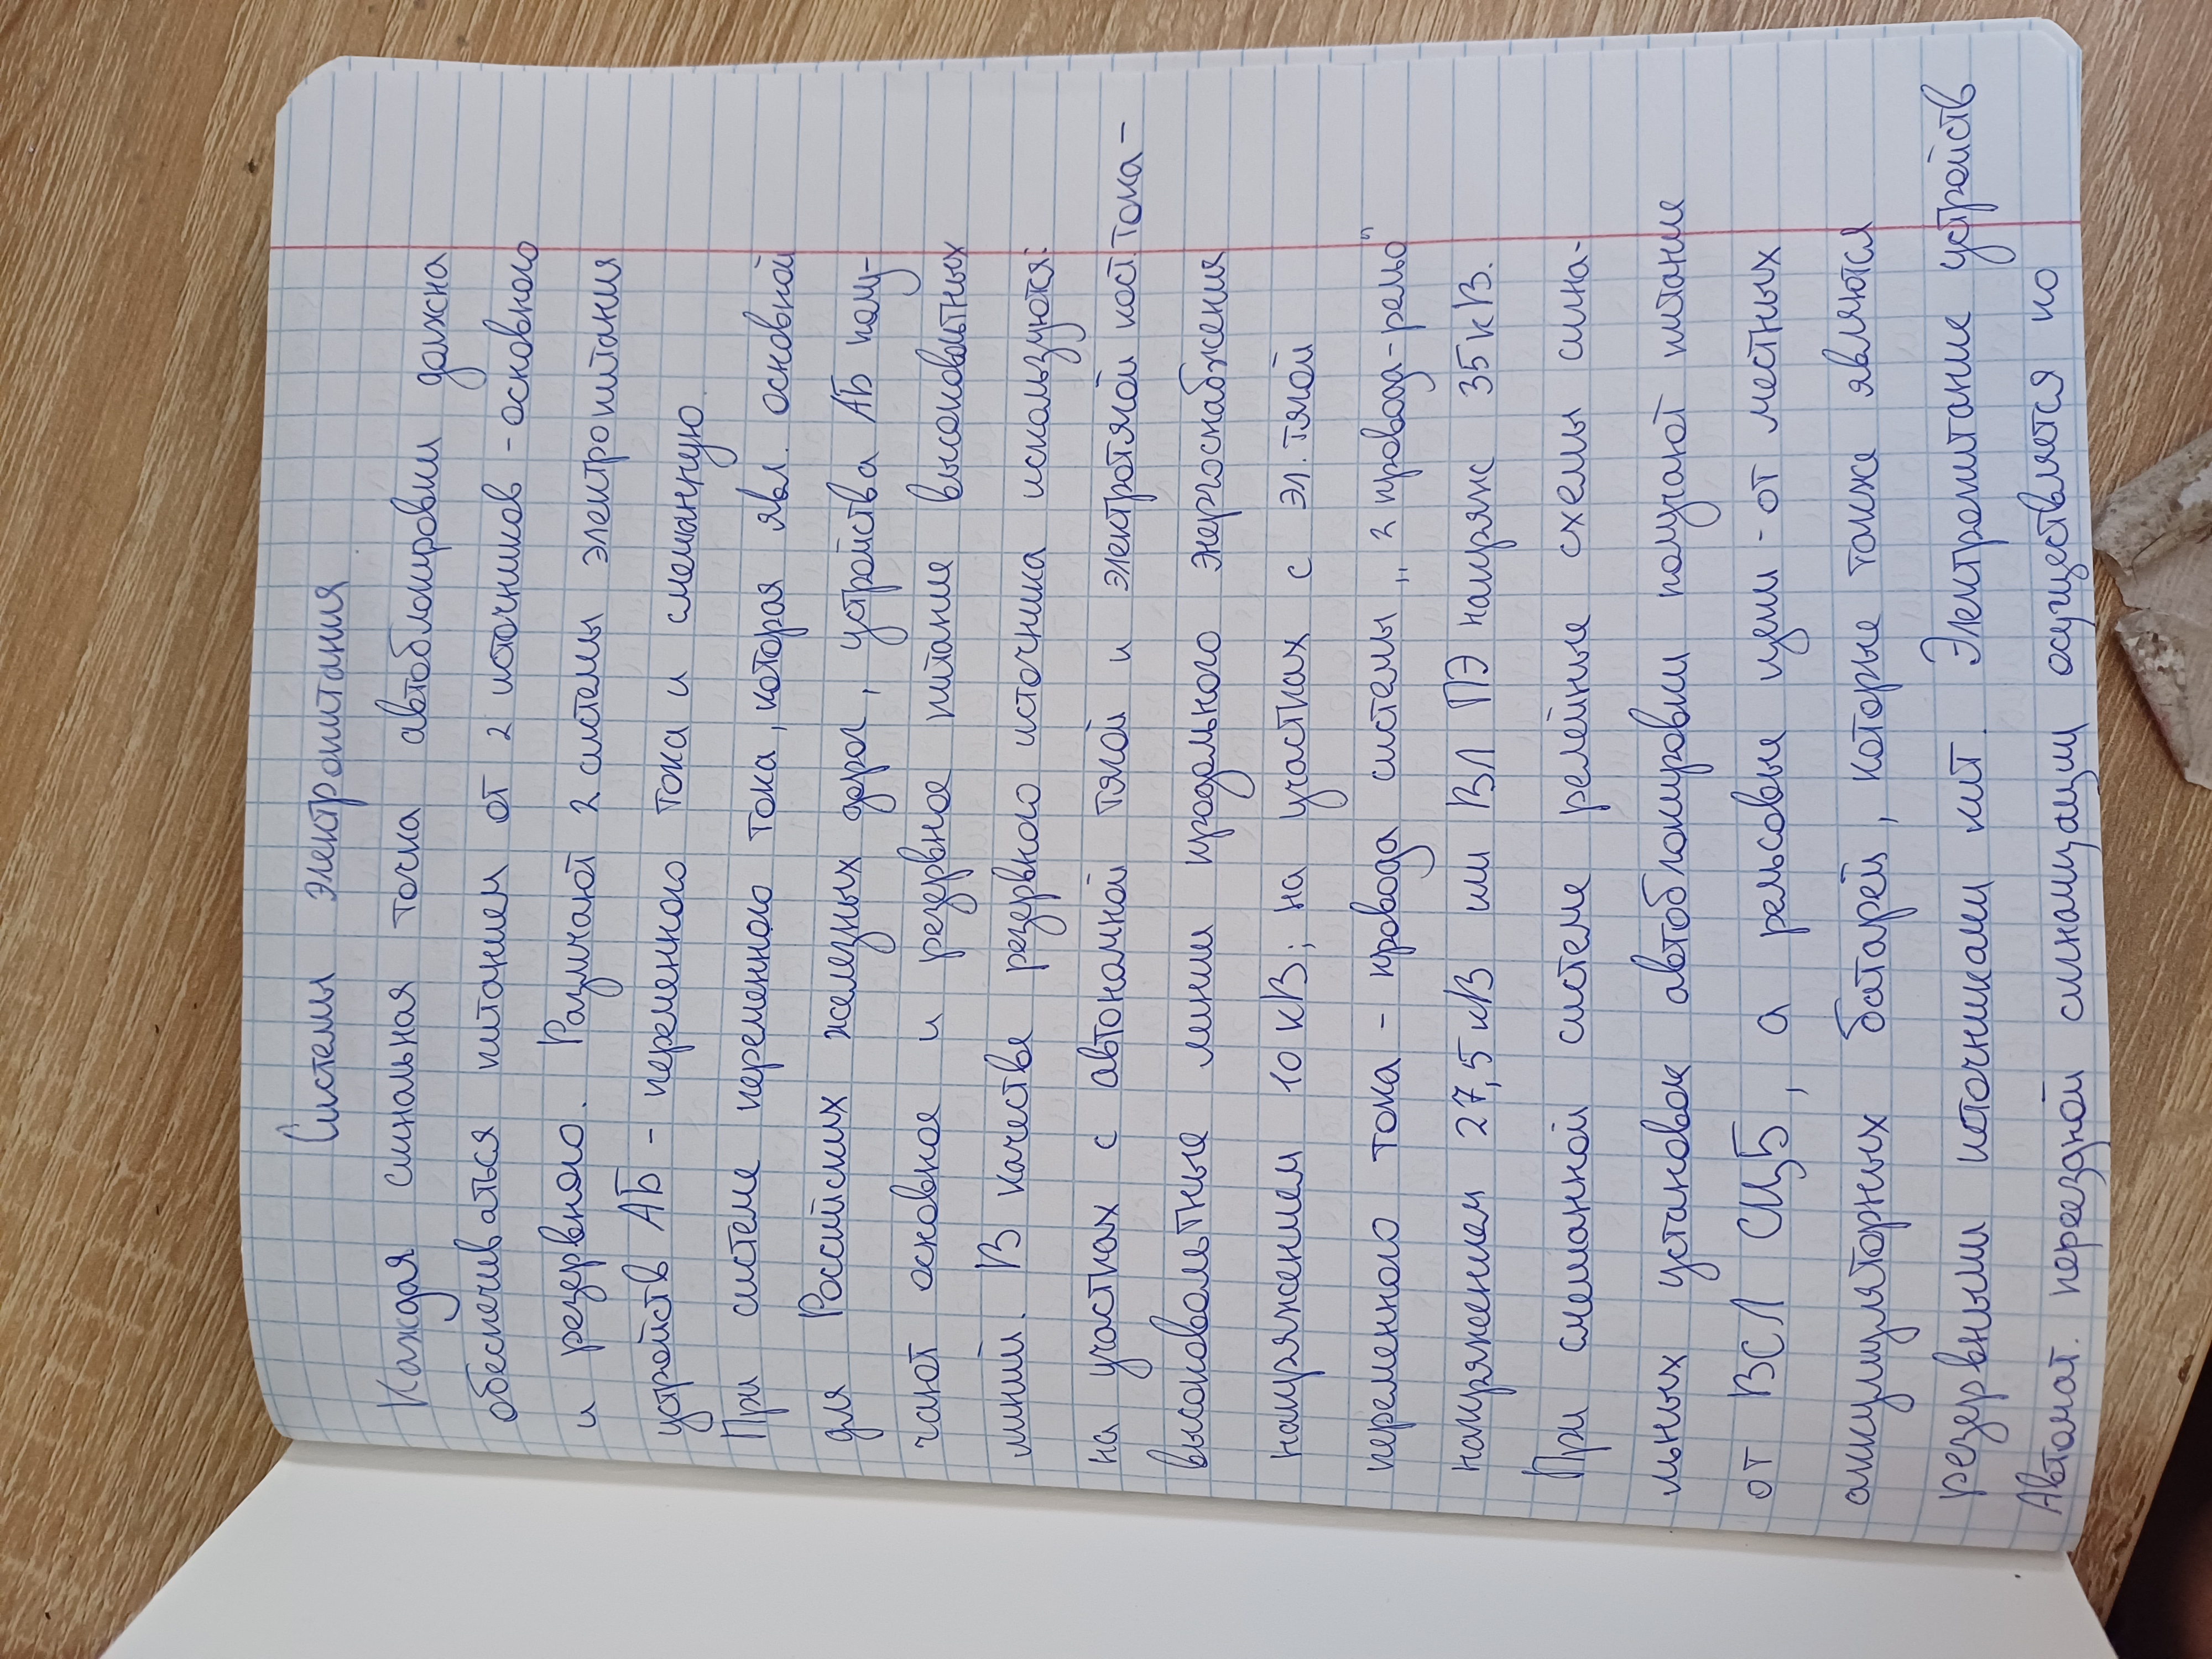 Системы электропитания
Каждая сигнальная точка автоблокировки должна
обеспечиваться питанием от 2 источников - основного
и резервного. Различают 2 системы электропитания
устройств АБ - переменного тока и смешанную.
При системе переменного тока, которая явл. основной
для Российских железных дорог, устройства АБ полу-
чают основное и резервное питание высоковольтных
линий. В качестве резервного источника используются:
на участках с автономной тягой и электротягой пост. тока -
высоковольтные линии продольного энергоснабжения
напряжением 10 кВ; на участках с эл. тягой
переменного тока - провода системы „2 провода-рельс"
напряжением 27,5 кВ или ВЛ ПЭ напряж 35 кВ.
При смешанной системе релейные схемы сигна-
льных установок автоблокировки получают питание
от ВСЛ СЦБ, а рельсовые цепи - от местных
аккумуляторных батарей, которые также являются
резервными источниками пит. Электропитание устройств
Автомат. переездной сигнализации осуществляется по